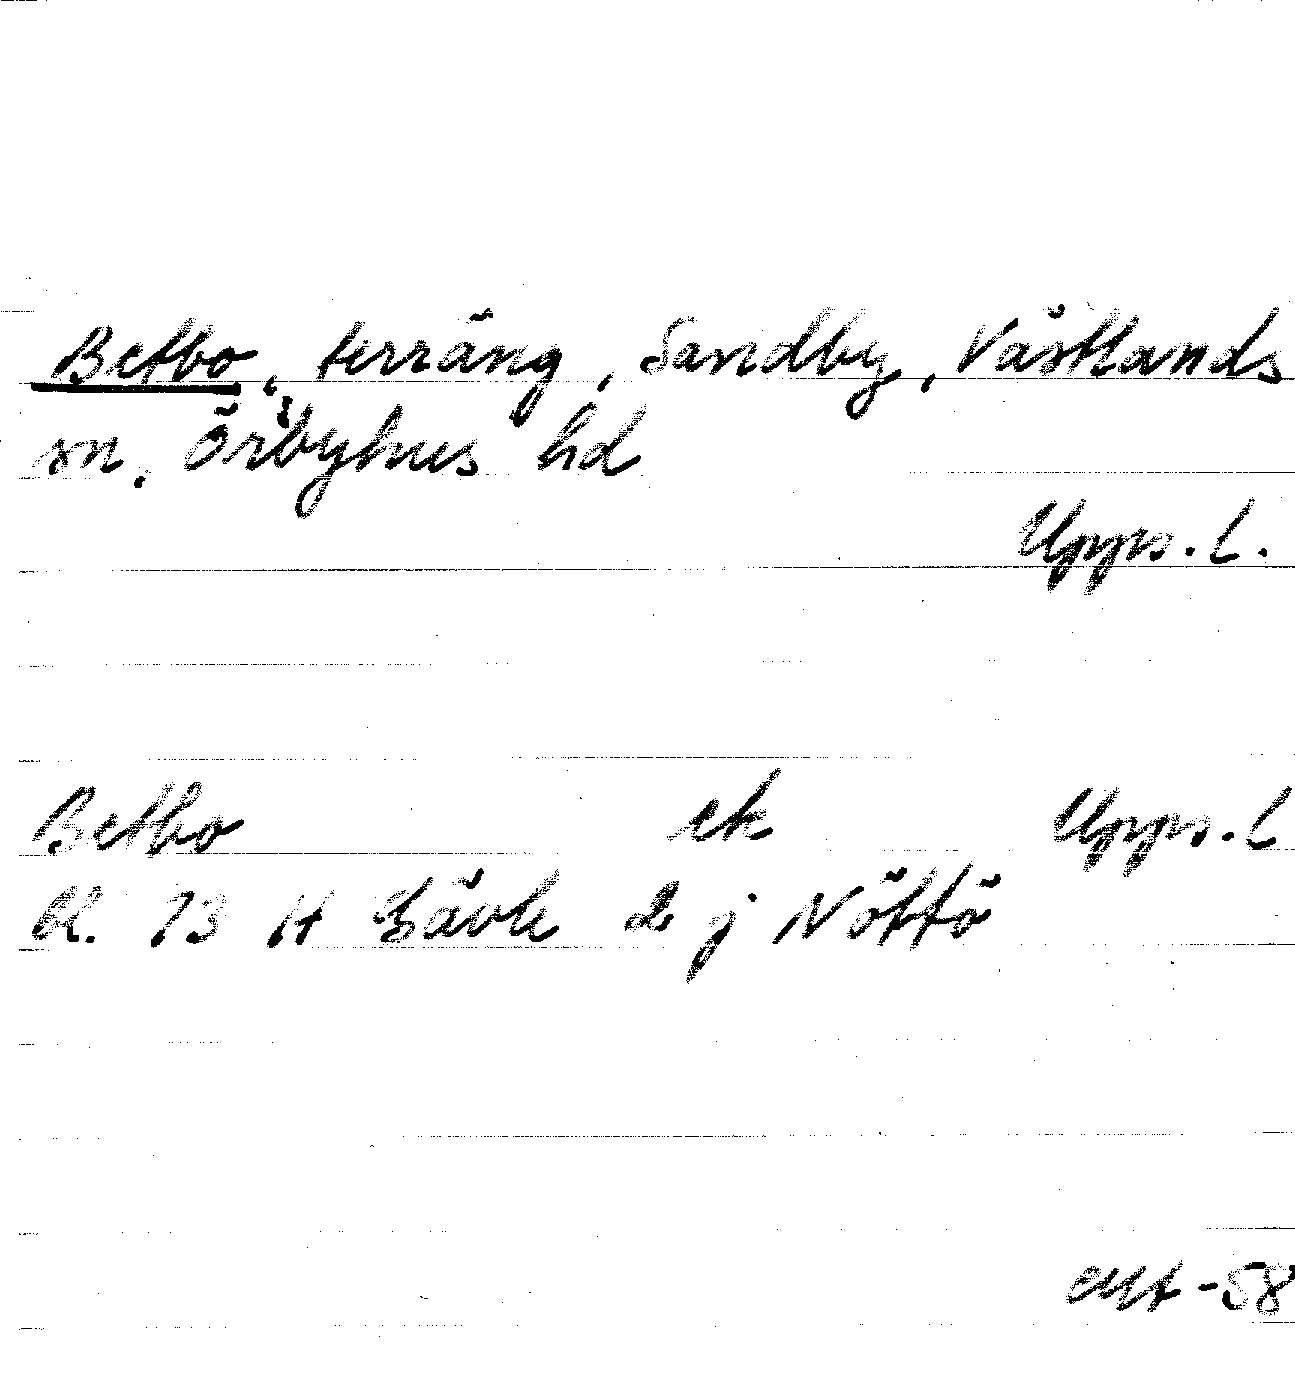 Betbo, terräng, Sandby, Västlands
sn, Örbyhus hd
Upps. l.
Betbo ek Upps. l
bl. 73 H Gävle d j Nöttö
-58